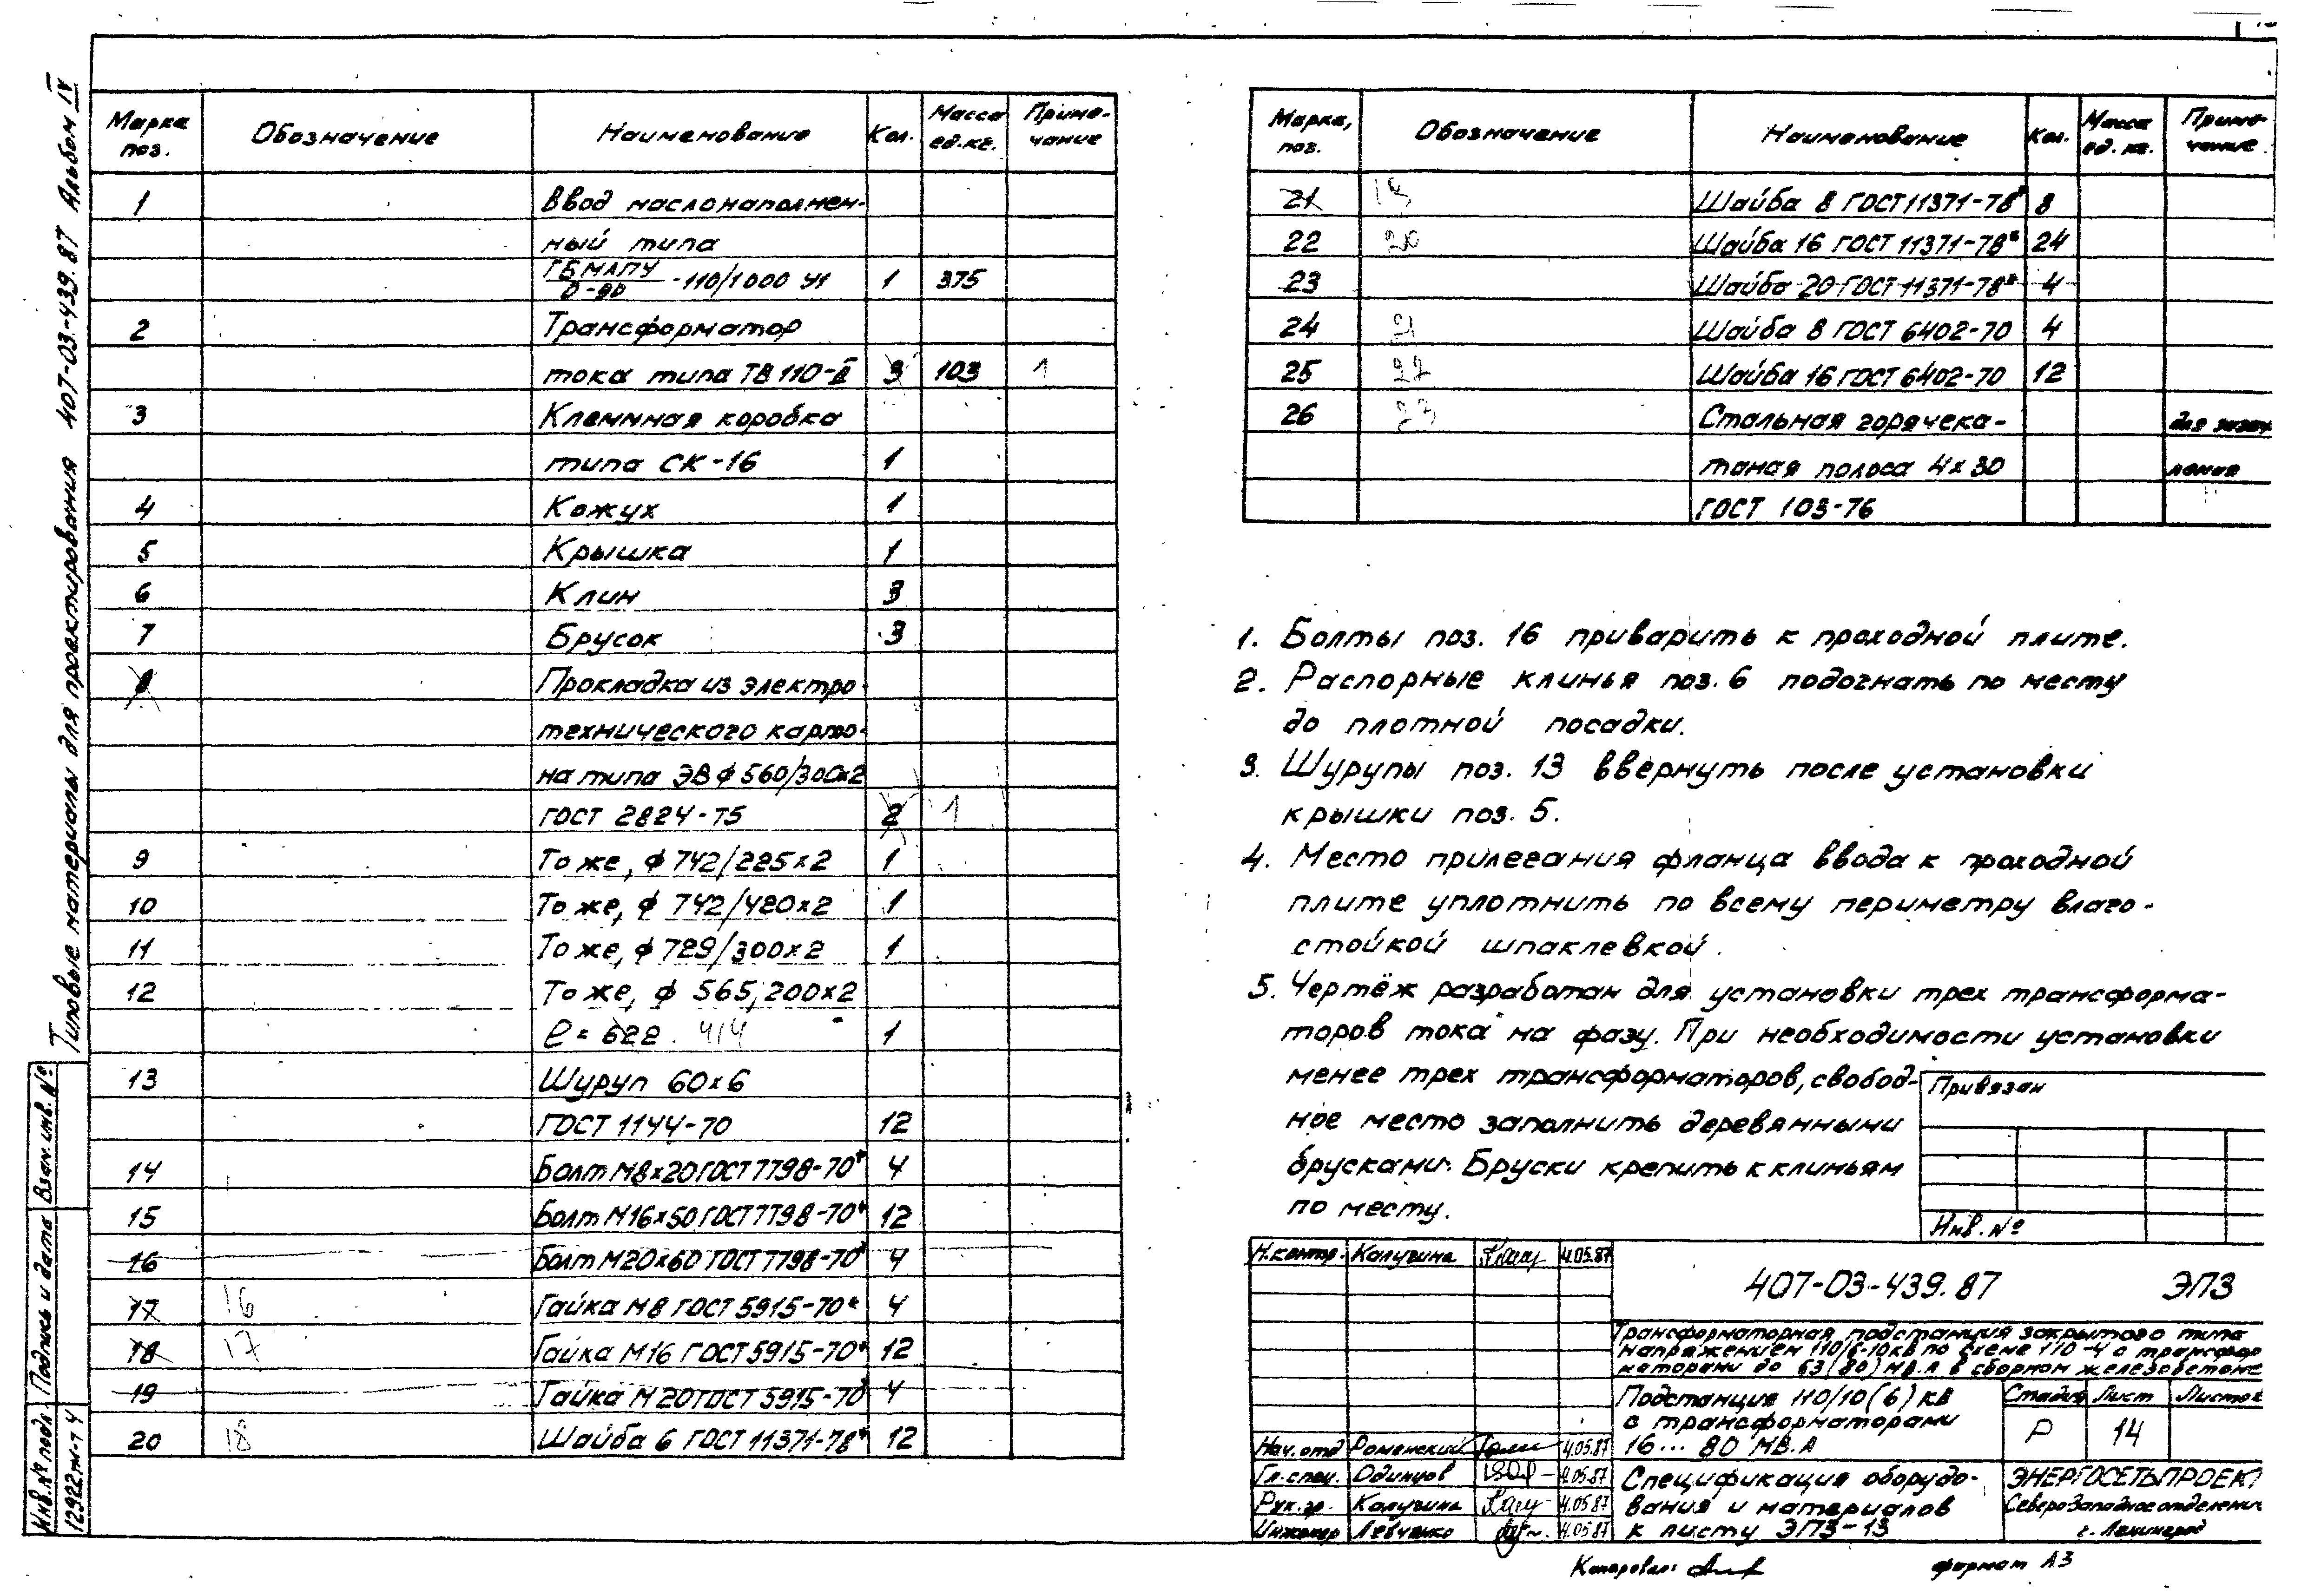 Типовые материалы для проектирования 407-03-439.87 Альбом IV
Марка поз. Обозначение Наименование Кол. Масса ед.кг. Приме-чание
1 Ввод маслонаполнен-
ный типа
ГБМЛПУ/0-90 -110/1000 У1 1 375
2 Трансформатор
тока типа ТВ 110-II 3 103 1
3 Клеммная коробка
типа СК-16 1
4 Кожух 1
5 Крышка 1
6 Клин 3
7 Брусок 3
8 Прокладка из электро-
технического карто-
на типа ЭВ ф 560/300х2
ГОСТ 2824-75 2 1
9 То же, ф 742/225х2 1
10 То же, ф 742/420х2 1
11 То же, ф 729/300х2 1
12 То же, ф 565,200х2
ℓ = 622 414 1
13 Шуруп 60х6
ГОСТ 1144-70 12
14 Болт М8х20 ГОСТ 7798-70* 4
15 Болт М16х50 ГОСТ 7798-70* 12
16 Болт М20х60 ГОСТ 7798-70* 4
17 16 Гайка М8 ГОСТ 5915-70* 4
18 17 Гайка М16 ГОСТ 5915-70* 12
19 Гайка М20 ГОСТ 5915-70* 4
20 18 Шайба 6 ГОСТ 11371-78* 12
Марка, поз. Обозначение Наименование Кол. Масса ед. кг. Приме-чание
21 19 Шайба 8 ГОСТ 11371-78* 8
22 20 Шайба 16 ГОСТ 11371-78* 24
23 Шайба 20 ГОСТ 11371-78* 4
24 21 Шайба 8 ГОСТ 6402-70 4
25 22 Шайба 16 ГОСТ 6402-70 12
26 23 Стальная горячека- для зазем-
таная полоса 4х30 ления
ГОСТ 103-76
1. Болты поз. 16 приварить к проходной плите.
2. Распорные клинья поз. 6 подогнать по месту
до плотной посадки.
3. Шурупы поз. 13 ввернуть после установки
крышки поз. 5.
4. Место прилегания фланца ввода к проходной
плите уплотнить по всему периметру влаго-
стойкой шпаклевкой.
5. Чертёж разработан для установки трех трансформа-
торов тока на фазу. При необходимости установки
менее трех трансформаторов, свобод-
ное место заполнить деревянными
брусками. Бруски крепить к клиньям
по месту.
Привязан
Инв. №
Н.контр. Калугина 4.05.87
407-03-439.87 ЭП3
Трансформаторная подстанция закрытого типа
напряжением 110/6-10кВ по схеме 110-4 с трансфор
маторами до 63(80) МВ.А в сборном железобетоне
Подстанция 110/10(6) кВ
с трансформаторами
16... 80 МВ.А
Стадия Лист Листов
Р 14
Нач.отд Роменский 4.05.87
Гл.спец. Одинцов 4.05.87
Рук.гр. Калугина 4.05.87
Инженер Левченко 4.05.87
Спецификация оборудо-
вания и материалов
к листу ЭП3-13
ЭНЕРГОСЕТЬПРОЕКТ
Северо-Западное отделение
г. Ленинград
Копировал:
формат А3
Инв.№ подл. Подпись и дата Взам. инв. №
12922тм-т4